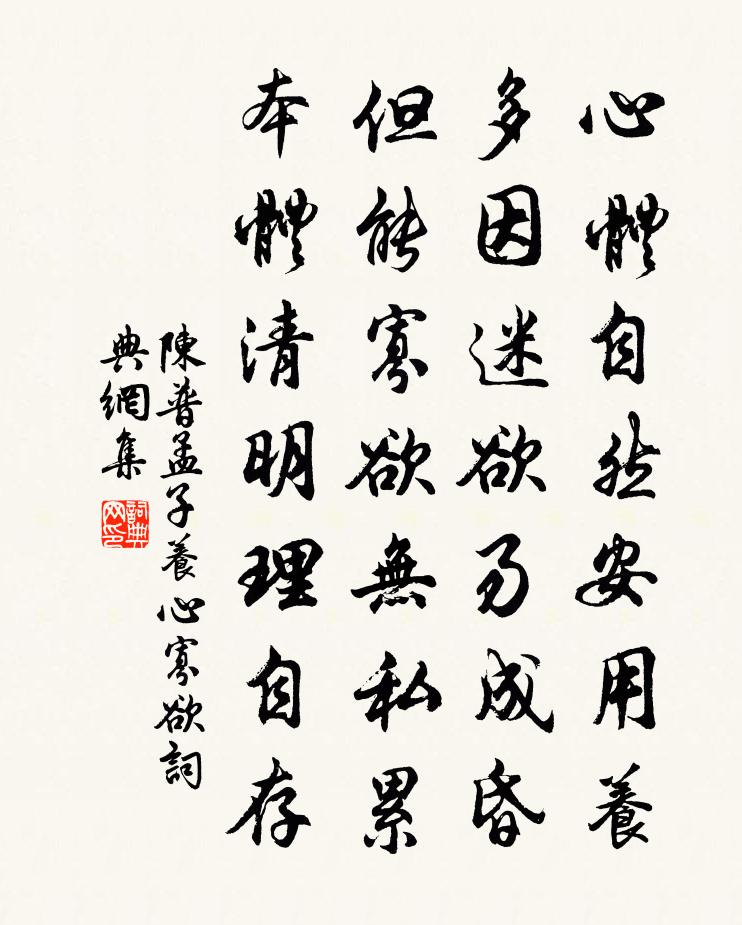 心體自然安用養
多因迷欲乃成昏
但能寡欲無私累
本體清明理自存
陳普孟子養心寡欲詞
典網集
詞典网印